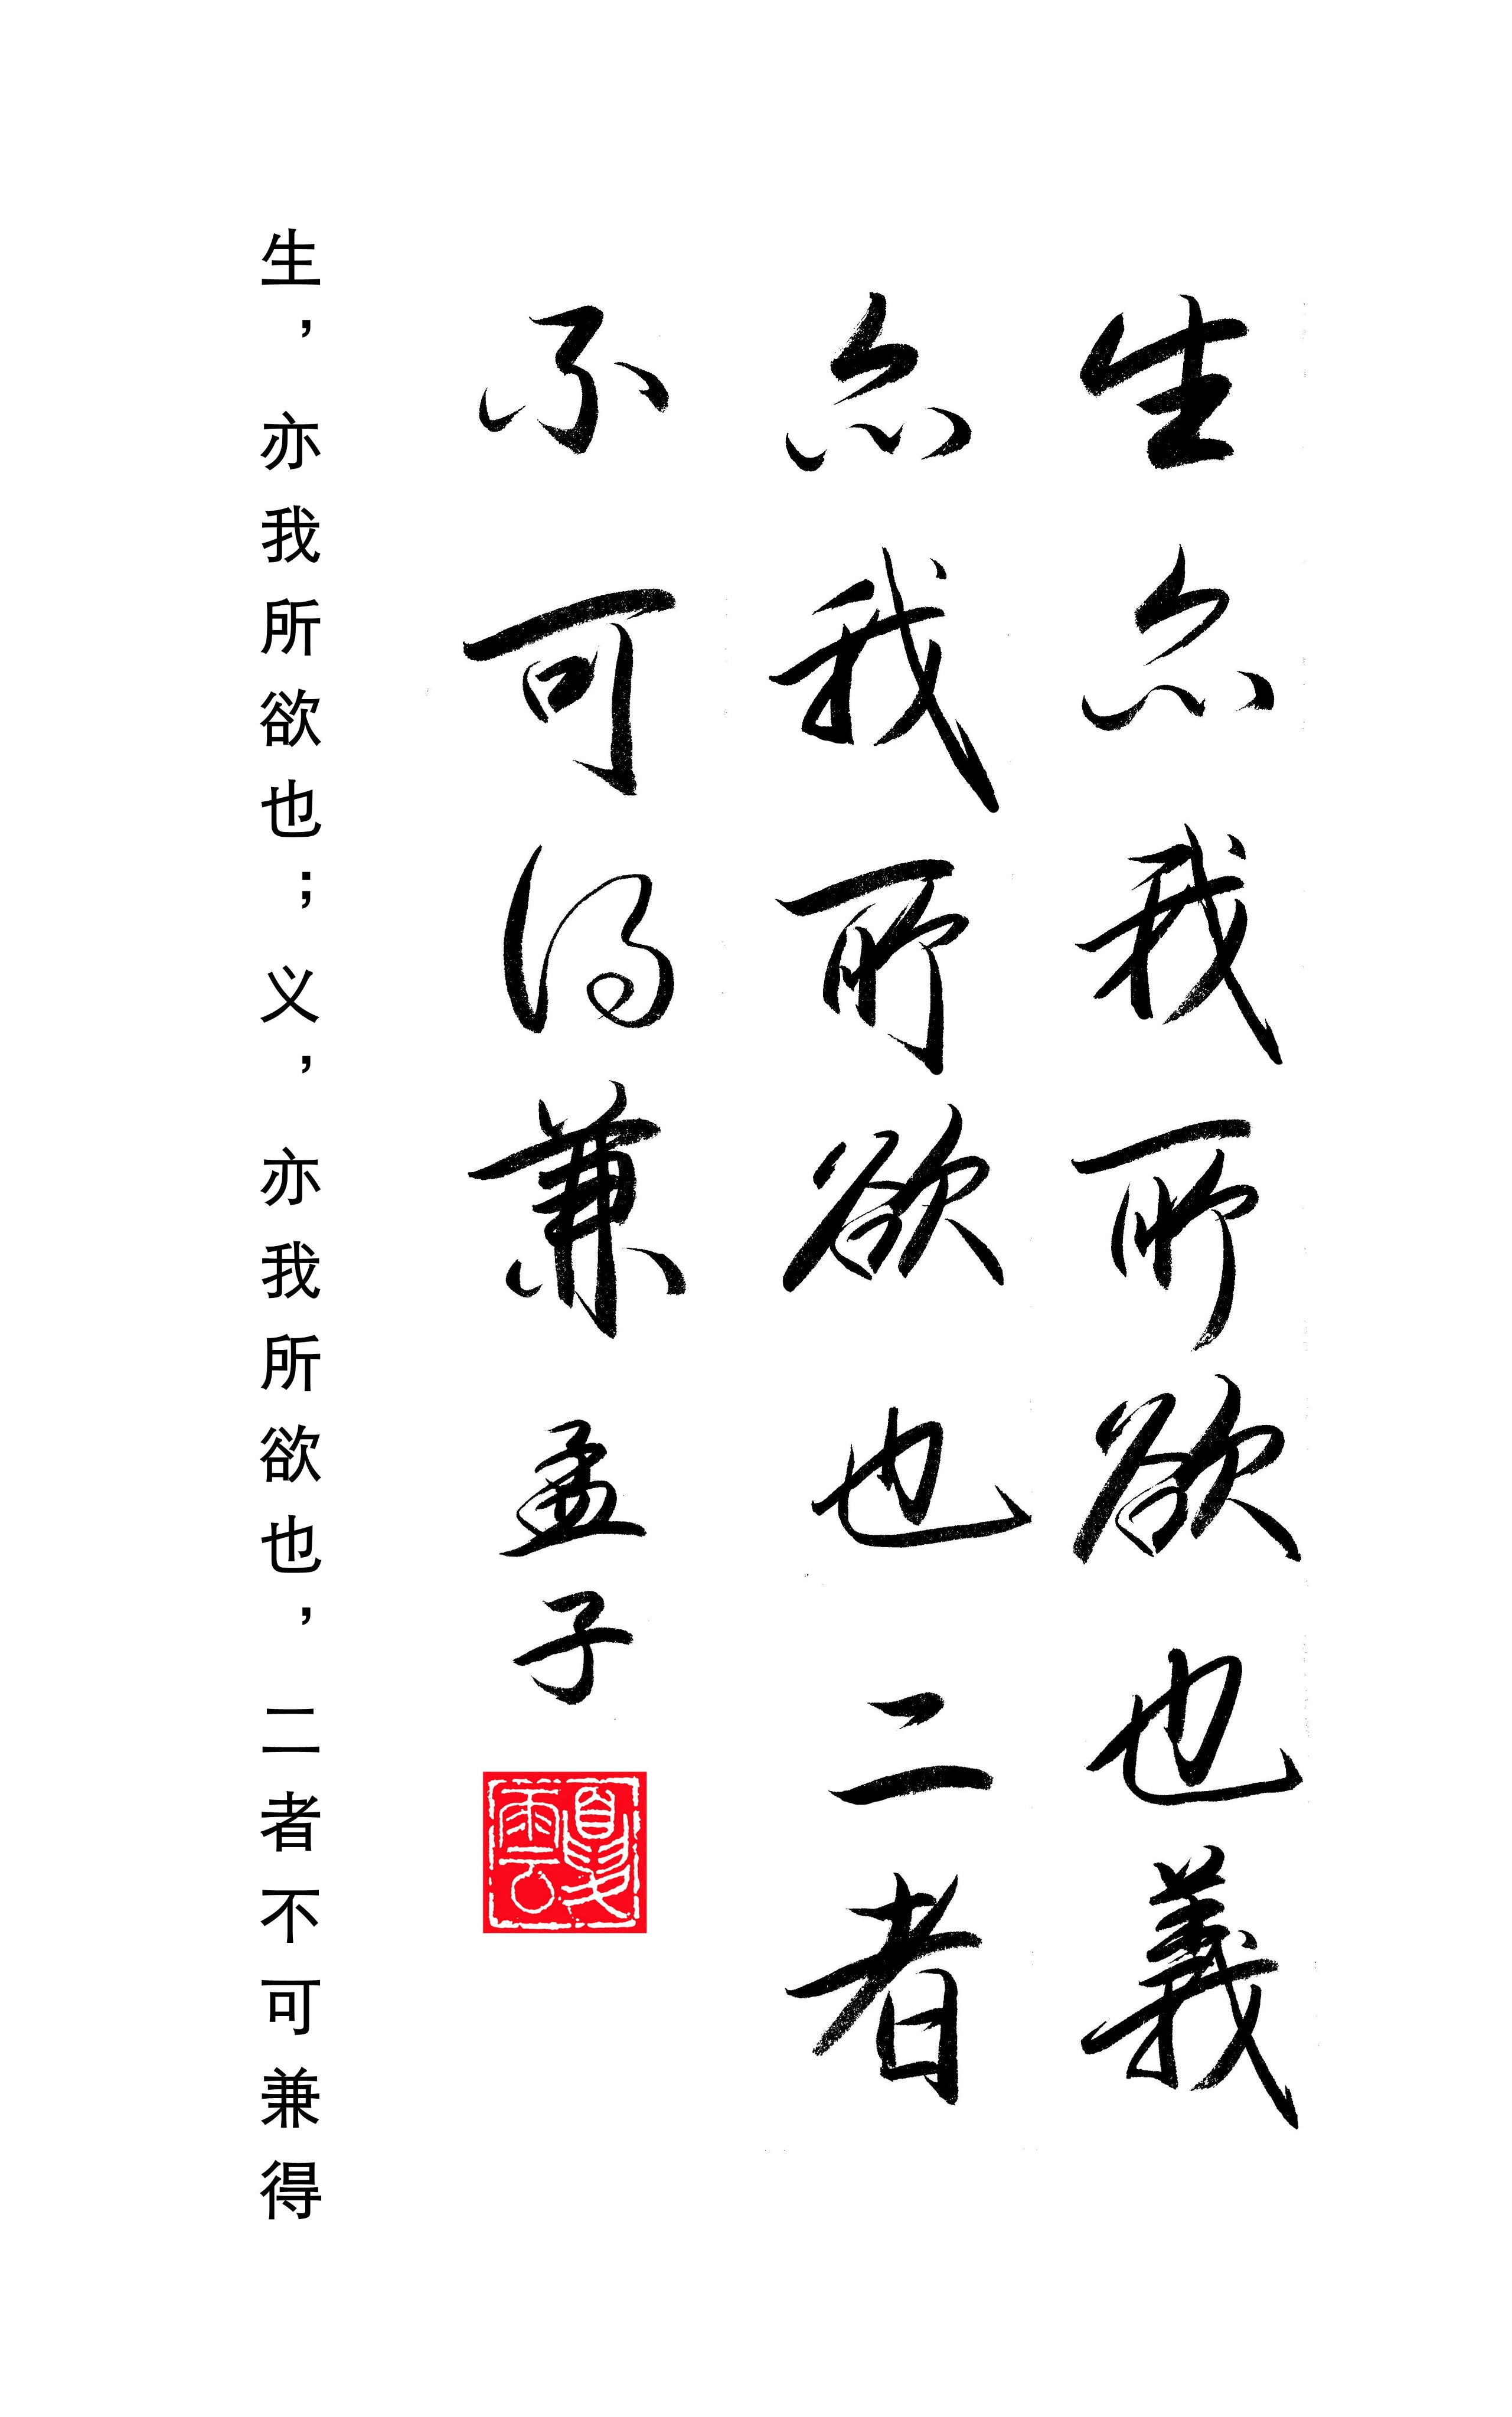 生亦我所欲也義
亦我所欲也二者
不可得兼 孟子
夏雲
生，亦我所欲也；义，亦我所欲也，二者不可兼得